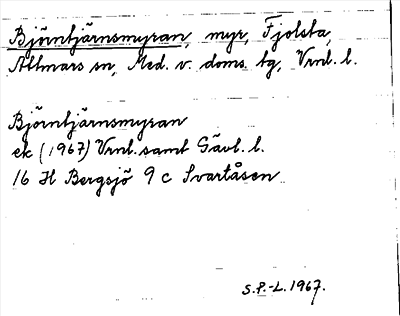 Björntjärnsmyran, myr, Fjolsta,
Attmars sn, Med. v. doms. tg, Vrnl. l.
Björntjärnsmyran
ek (1967) Vrnl. samt Gävl. l.
16 H Bergsjö 9 c Svartåsen
S.P.-L. 1967.